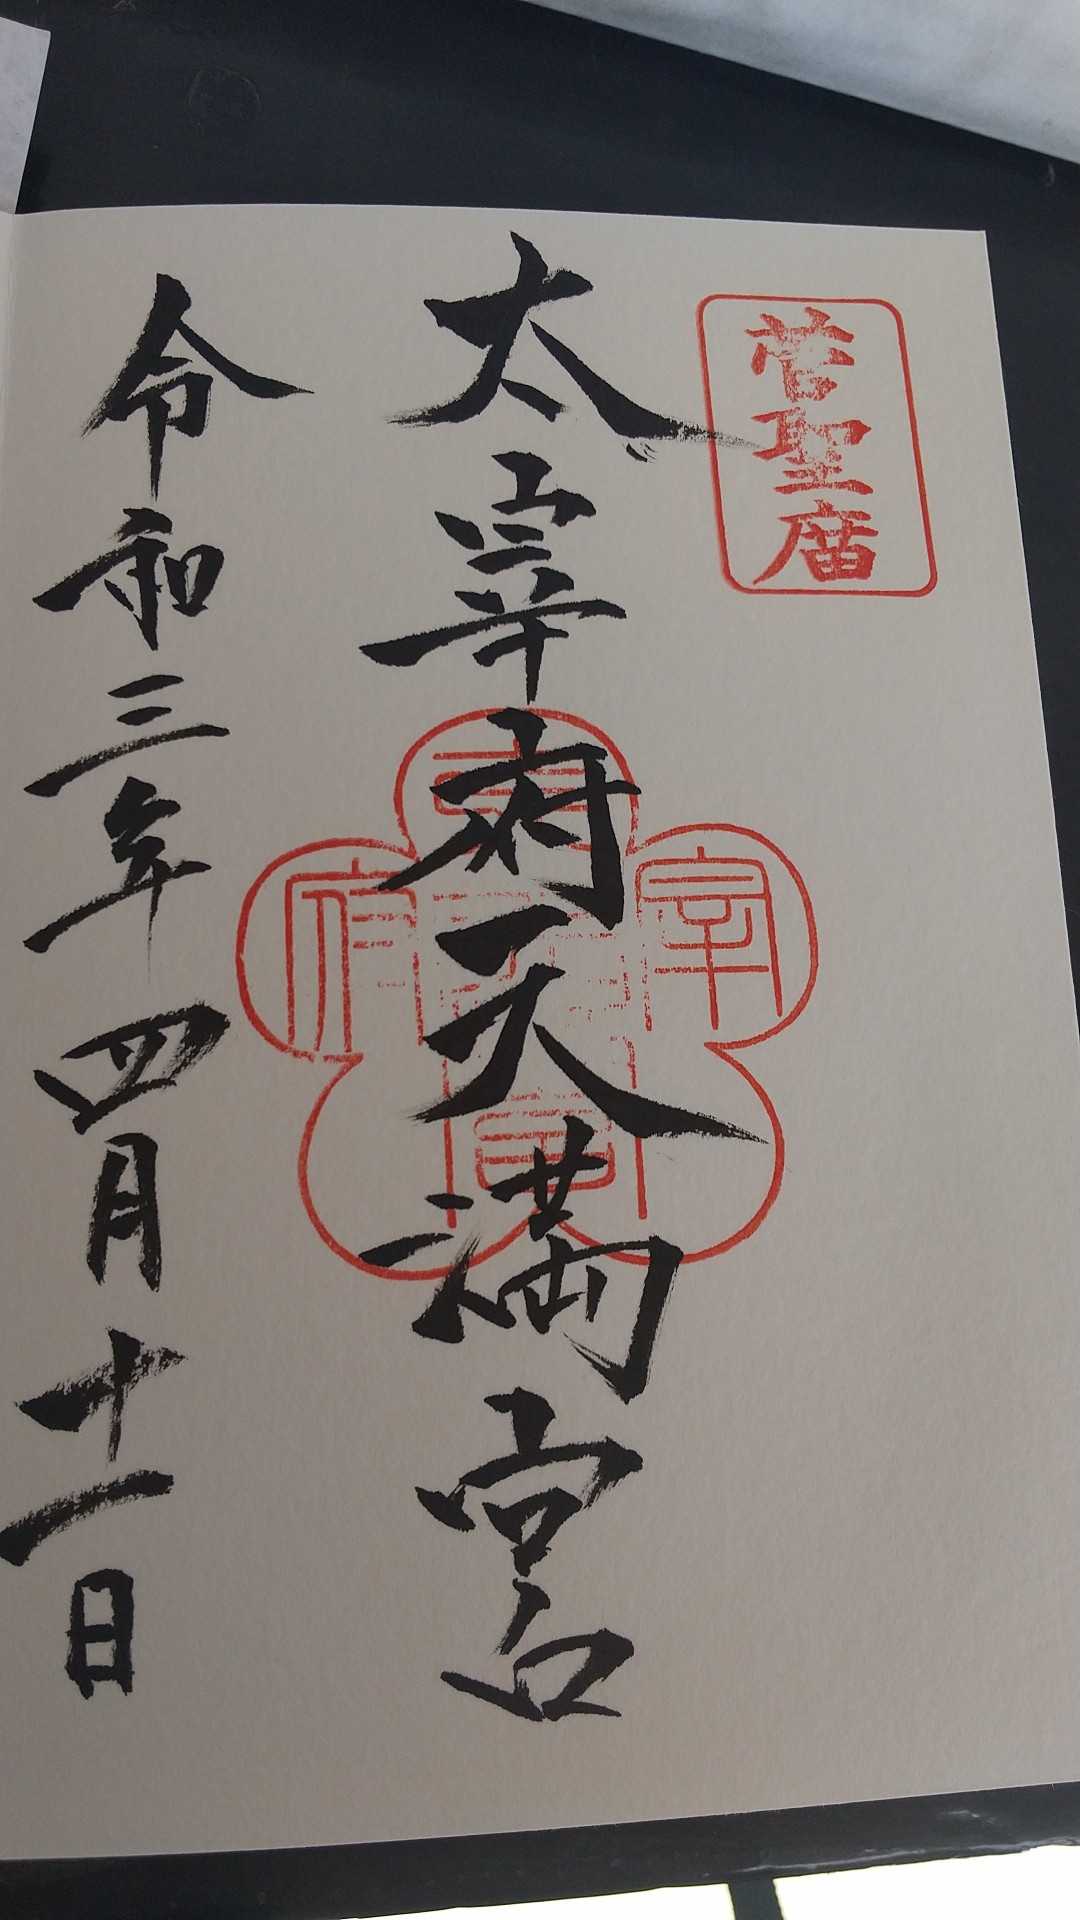 菅聖廟
太宰府天満宮
宰府
令和三年四月十一日